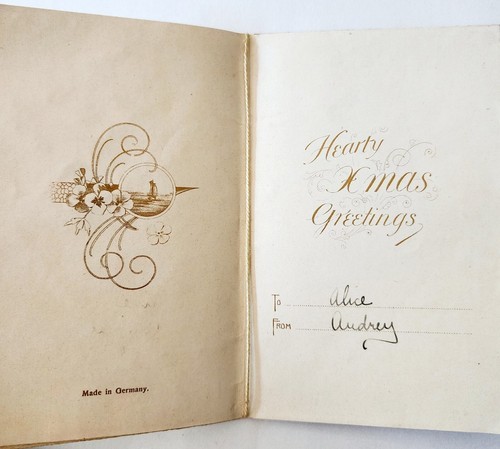 Made in Germany.
Hearty
Xmas
Greetings
To Alice
From Audrey